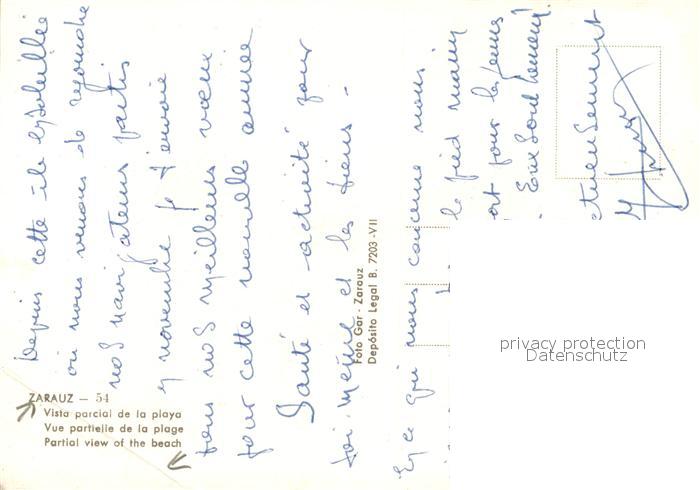 Depuis cette île ensoleillée
où nous venons de rejoindre
nos navigateurs partis
en novembre je t'envoie
tous nos meilleurs vœux
pour cette nouvelle année
Santé et activité pour
toi-même et les tiens -
En ce qui nous concerne nous
le pied marin
pour les
ZARAUZ - 54
Vista parcial de la playa
Vue partielle de la plage
Partial view of the beach
Foto Gar - Zarauz
Depósito Legal B. 7203 -VII
privacy protection
Datenschutz